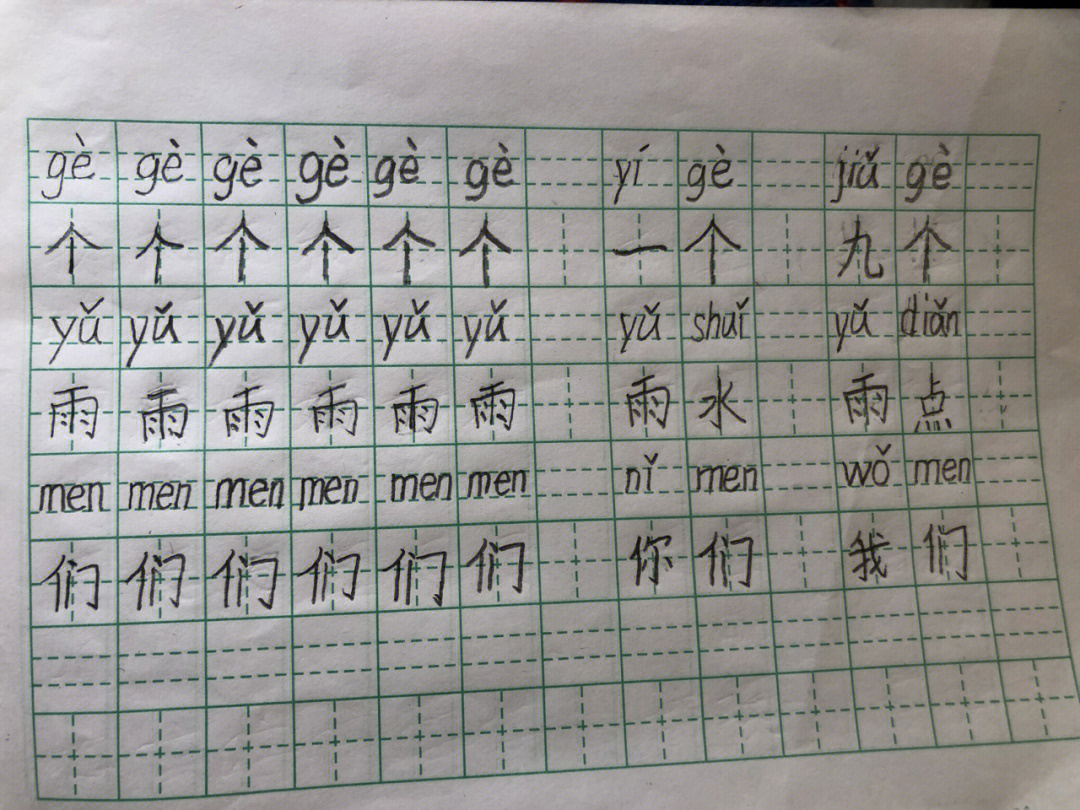 gè gè gè gè gè gè yí gè jiǔ gè
个 个 个 个 个 个 一 个 九 个
yǔ yǔ yǔ yǔ yǔ yǔ yǔ shuǐ yǔ diǎn
雨 雨 雨 雨 雨 雨 雨 水 雨 点
men men men men men men nǐ men wǒ men
们 们 们 们 们 们 你 们 我 们